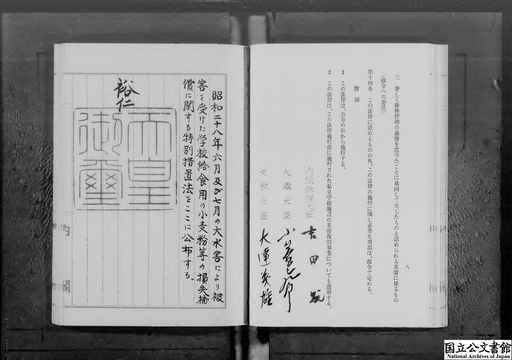 三 著しく維持管理の義務を怠つたことに基因して生じたものと認められる災害に係るもの
(政令への委任)
第十四条 この法律に定めるものの外、この法律の施行に関し必要な事項は、政令で定める。
附 則
1 この法律は、公布の日から施行する。
2 この法律は、この法律施行前に施行された私立学校施設の災害復旧事業についても適用する。
八
内閣総理大臣 吉田茂
大蔵大臣 小笠原
文部大臣 大達茂雄
昭和二十八年六月及び七月の大水害により被
害を受けた学校給食用の小麦粉等の損失補
償に関する特別措置法をここに公布する。
裕仁
天皇
御璽
内閣
国立公文書館
National Archives of Japan